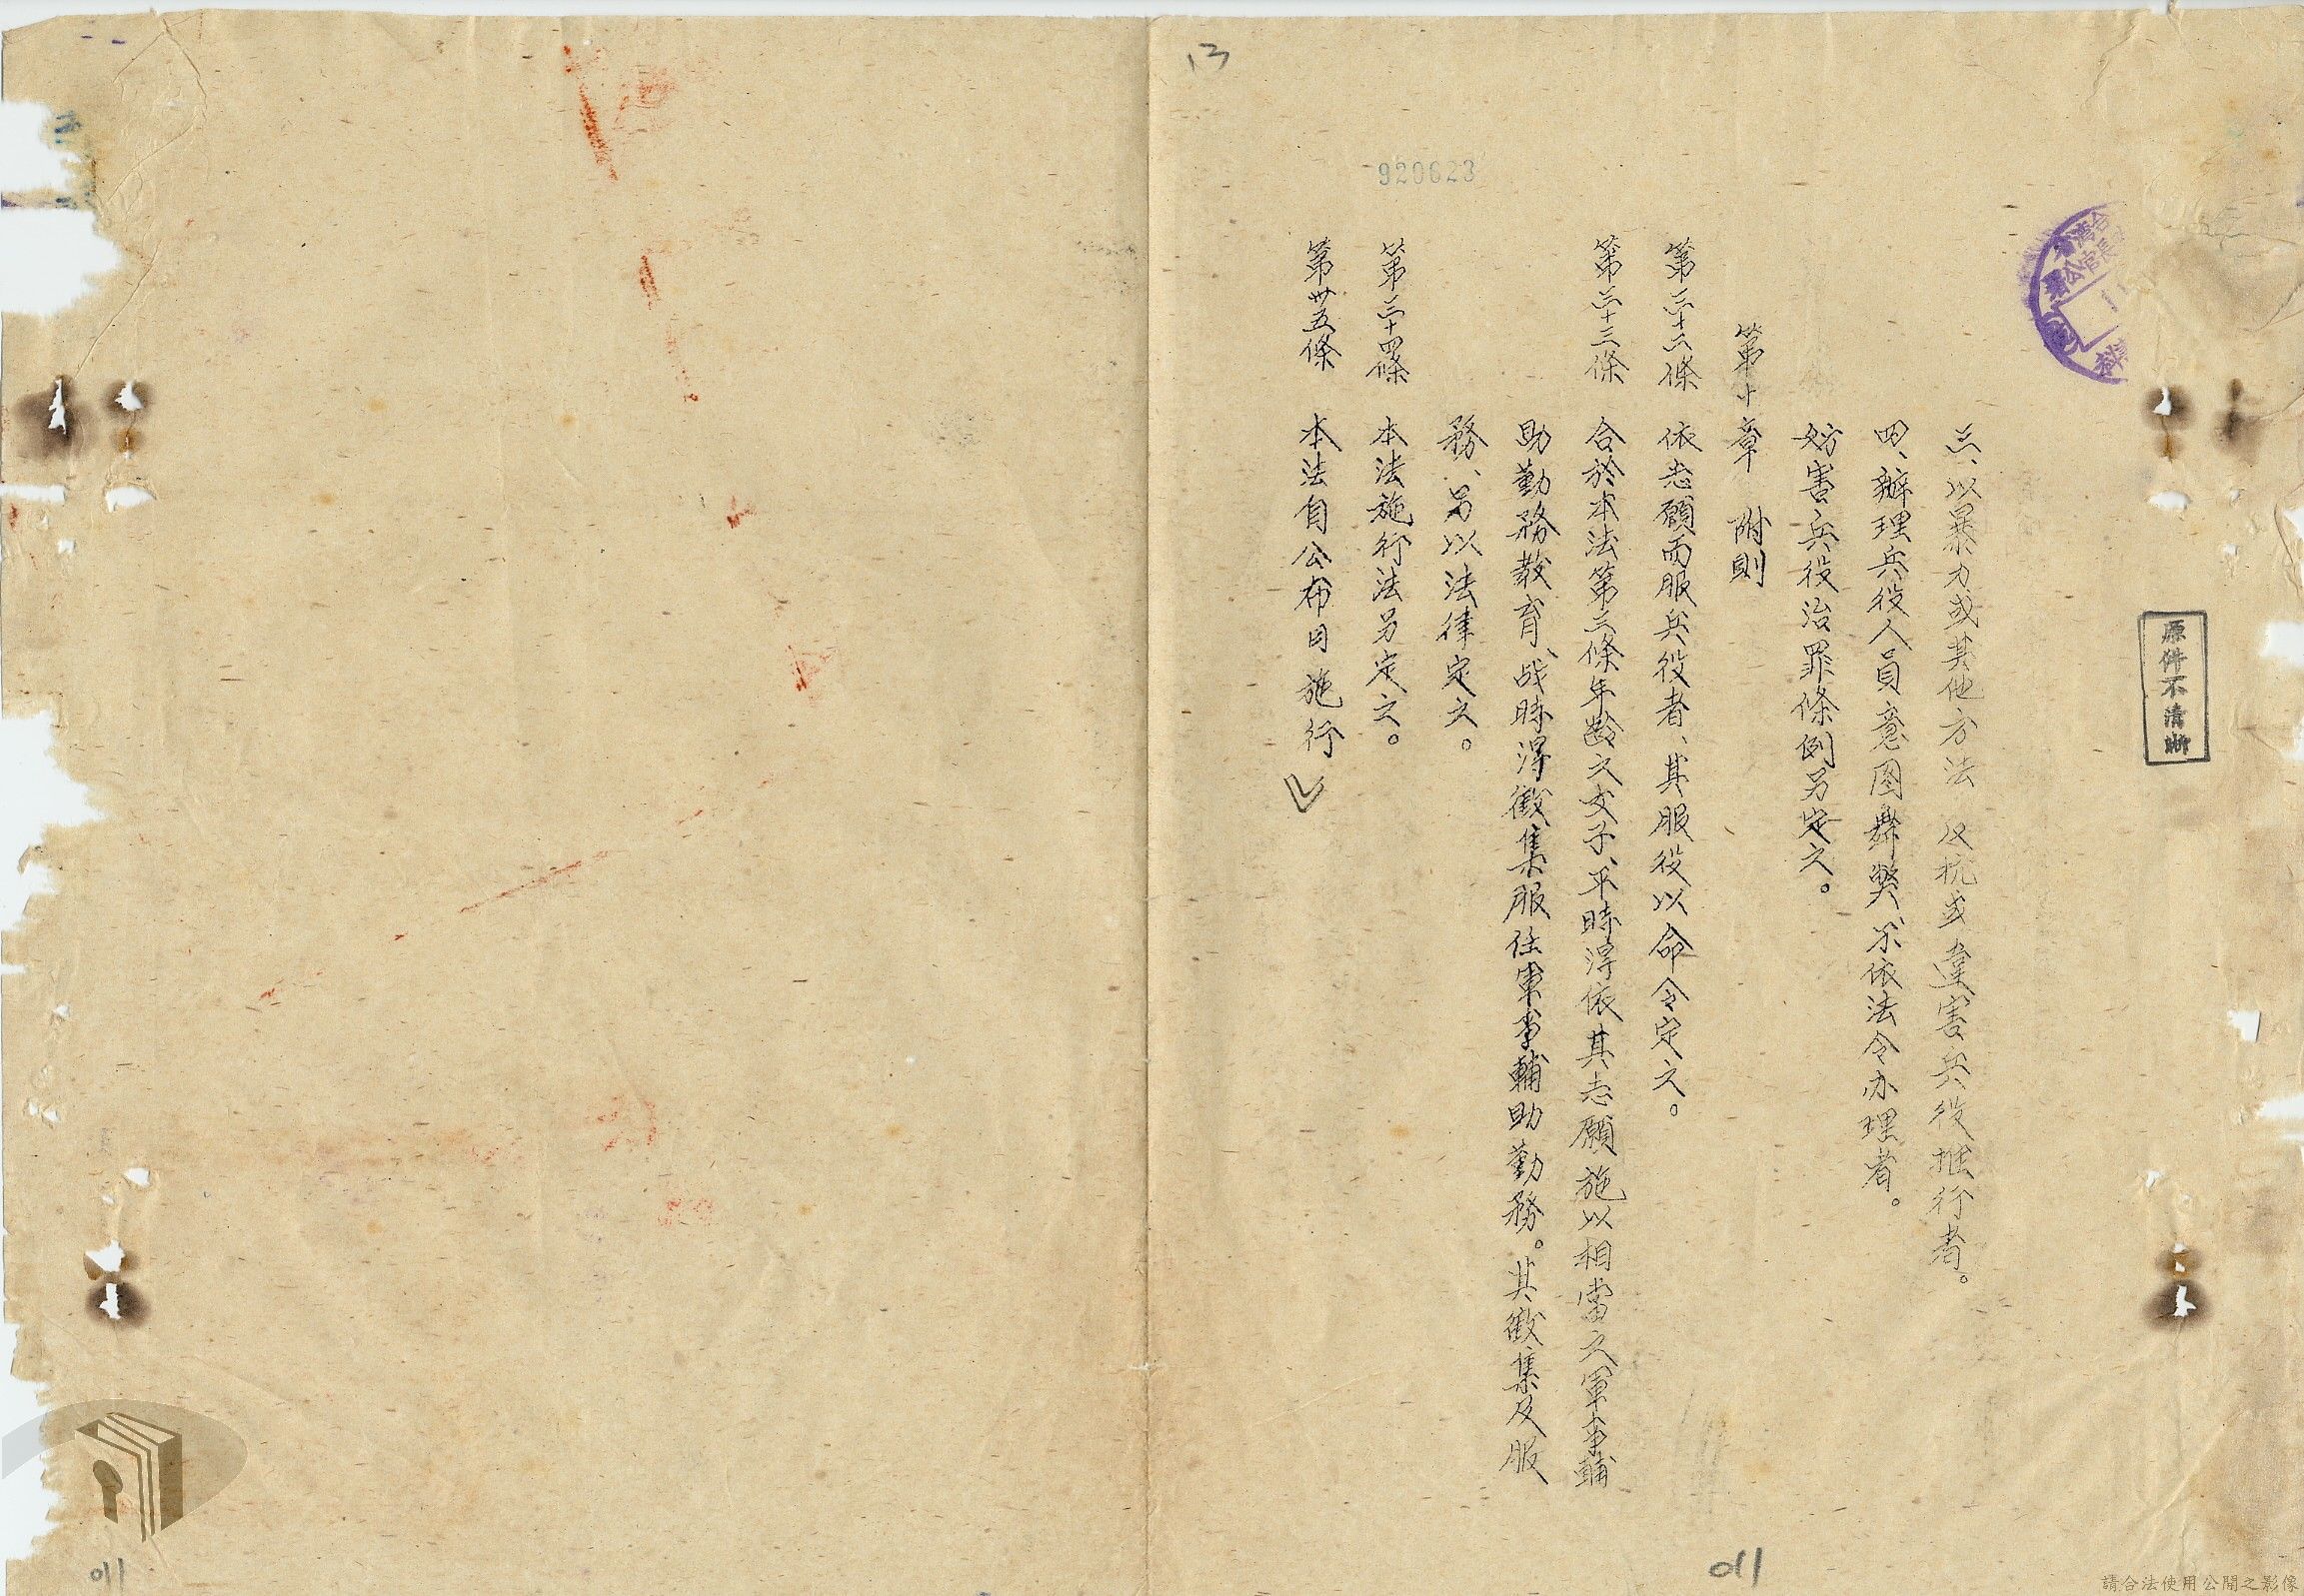 三、以暴力或其他方法 反抗或違害兵役推行者。
四、辦理兵役人員意图舞弊、不依法令办理者。
妨害兵役治罪條例另定之。
第十章 附則
第三十二條 依志願而服兵役者、其服役以命令定之。
第三十三條 合於本法第三條年齡之女子、平時得依其志願施以相當之軍事輔
助勤務教育、战時得徵集服任軍事輔助勤務。其徵集及服
務、另以法律定之。
第三十四條 本法施行法另定之。
第卅五條 本法自公布日施行
13
920623
原件不清晰
011
011
請合法使用公開之影像